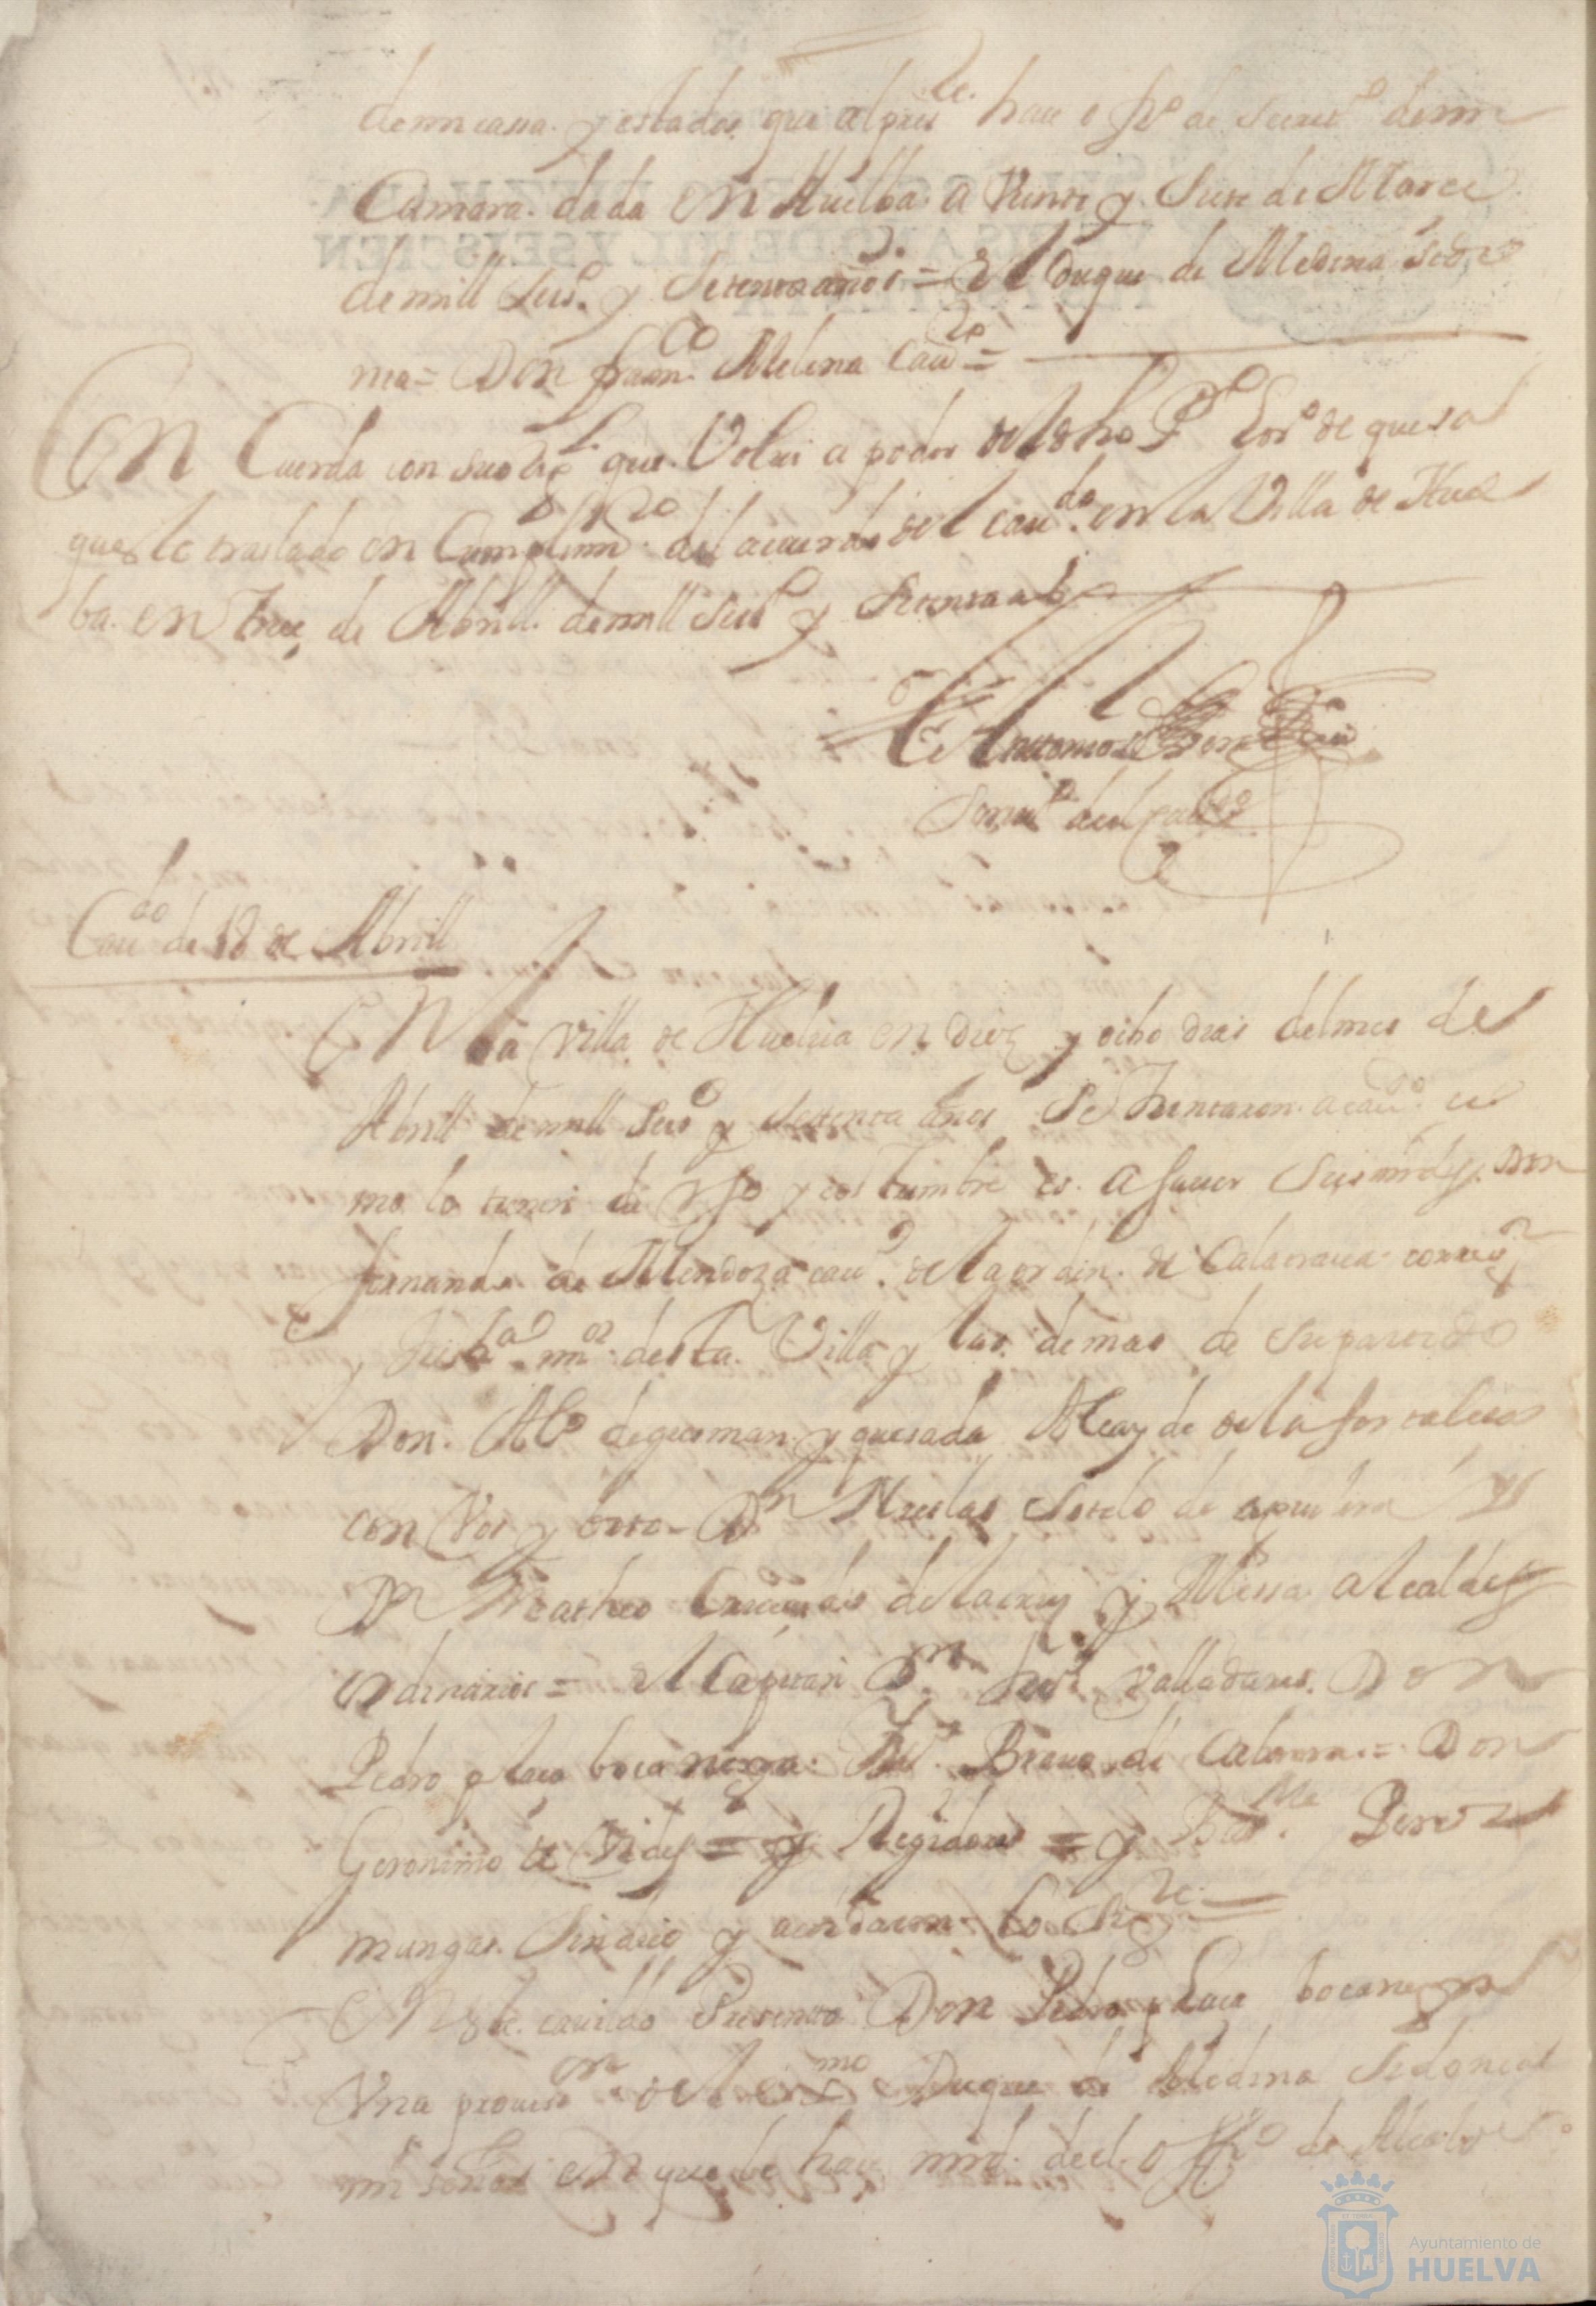 de mi cassa y estados que al pres.te hace ofiº de secretº de mi
Camara. dada en Huelba a Veinte y Siete de Março
de mill seisº y Setenta años = El Duque de Medina Sido
nia = Don franco Molina Cau.ro =
Con Cuerda con su orig.l que Volui a poder del dho Don de quesa
que le traslado en Cumplimto del acuerdo del cau.do en la Villa de Huel
ba. en treçe de Abrill de mill seisº y Setenta aº
Antonio
del Cau.do
Cau.do de 18 de Abrill
En la Villa de Huelua en diez y ocho dias del mes de
Abrill de mill seisº y setenta años se Juntaron a cau.do co
mo lo tienen de Vso y costumbre es. a sauer Sus mrds. Don
fernando de Mendoza cau.º de la orden de Calatraua correg.or
y Justª mor desta Villa y las demas de su partido
Don Alº de gusman y quesada Alcayde de la fortaleza
con Vos y boto - Dn Nicolas Sotelo de y
Dn Matheo de la cruz y Messa alcaldes
ordinarios = el Capitan D.n Valladares. Don
Pedro ponce bocanegra. Brauo de Cabrera = Don
Geronimo de Vides = y Regidores = y Bar.me Perez
mungas. Sindico y acordaron lo Sig.te =
En este cauildo Presento Don Pedro ponce bocanegra
Vna prouis.on del ex.mo Duque de Medina Sidonia
mi señor en que le haçe mrd. del offiº de
Ayuntamiento de
HUELVA